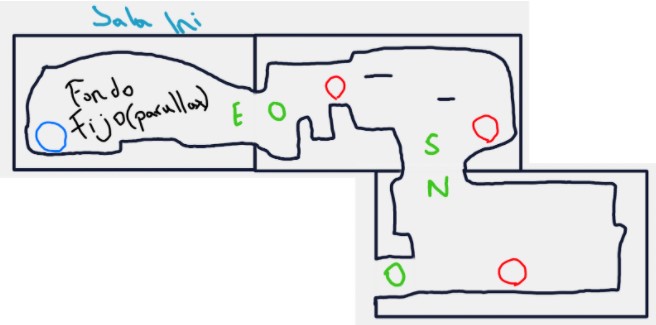 Sala Ini
Fondo
Fijo(parallax)
E O
S
N
O